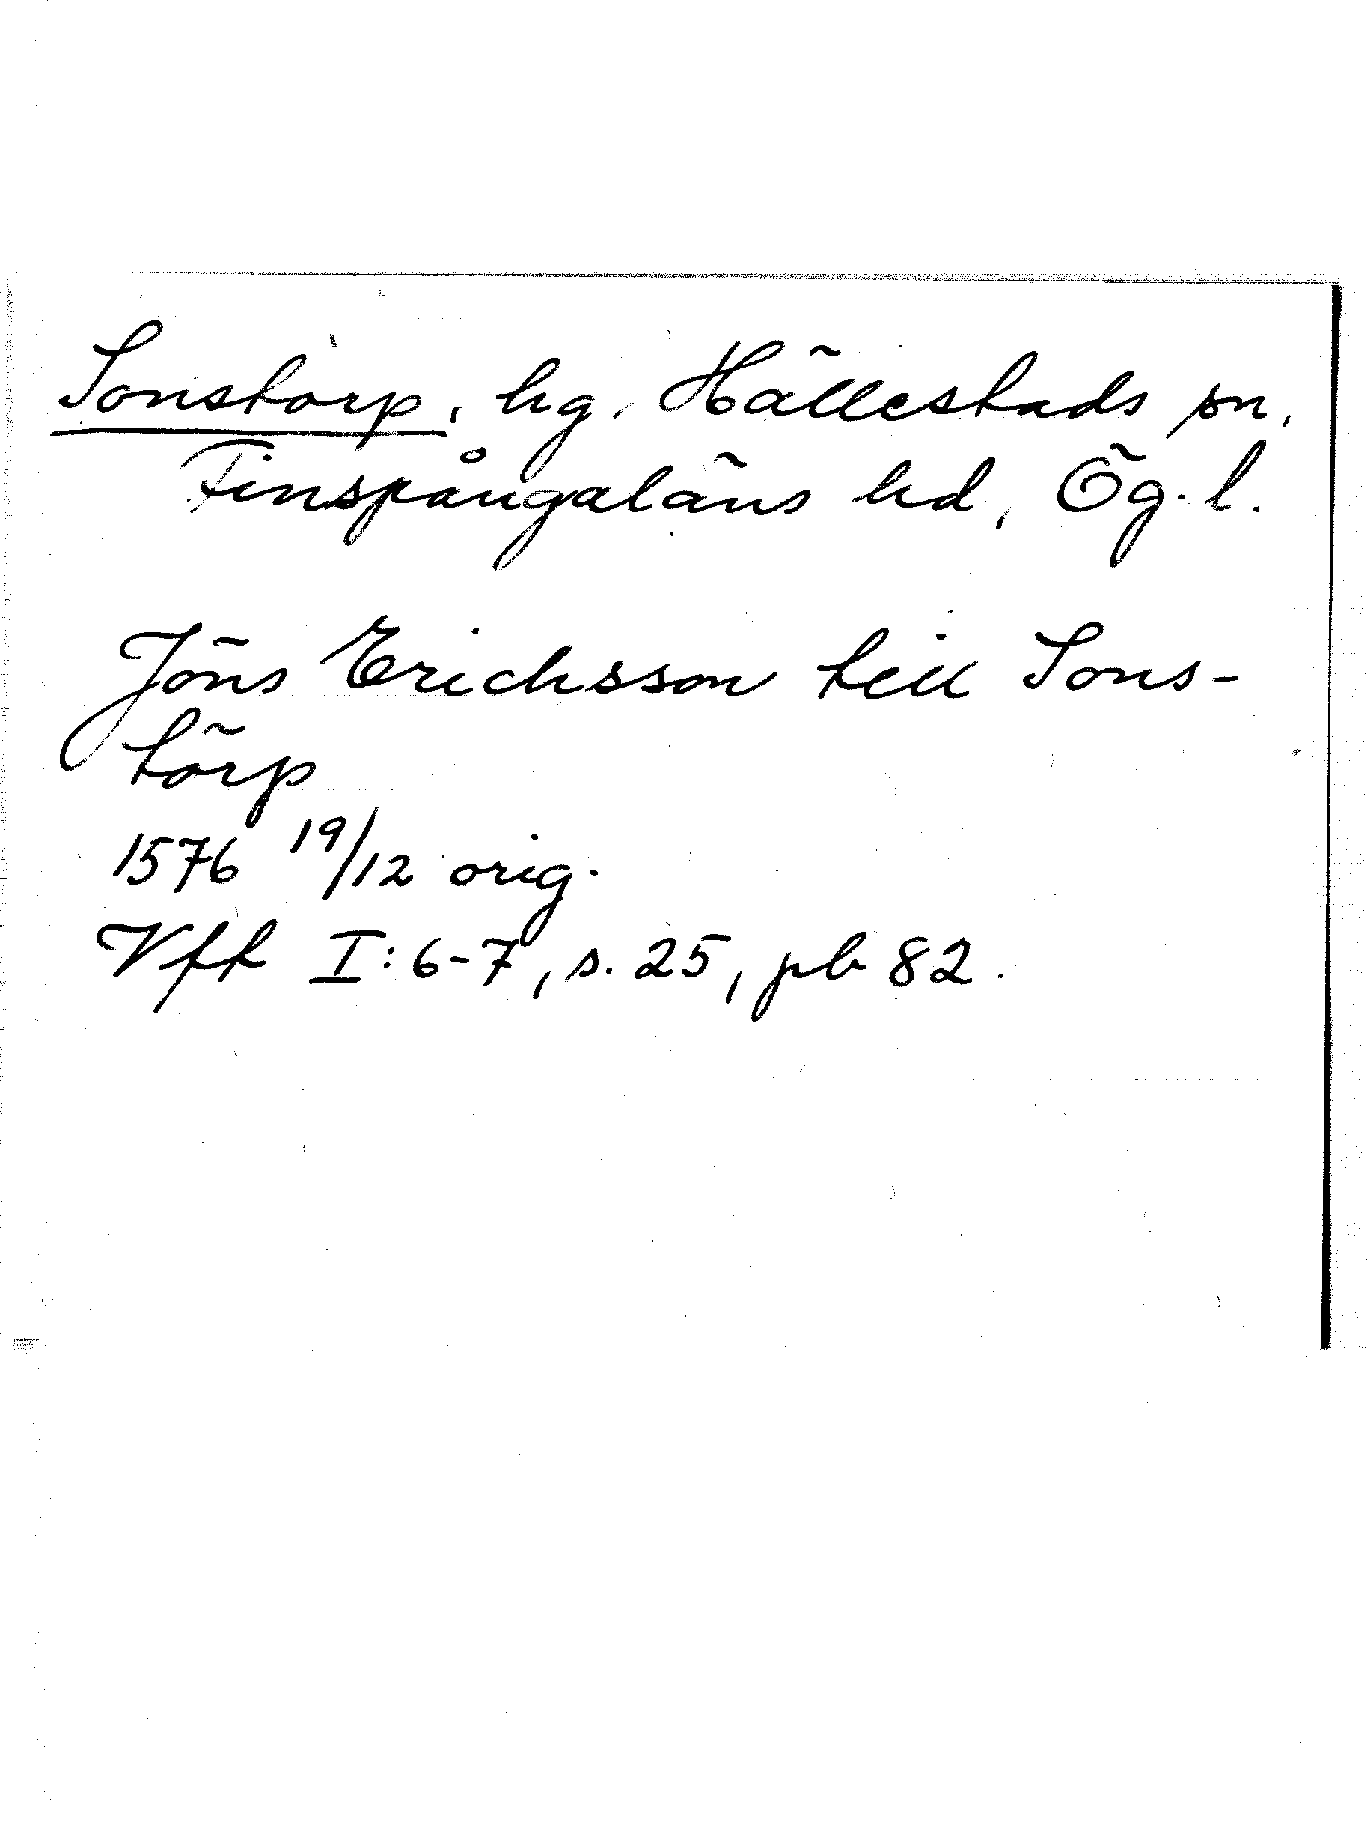 Sonstorp, hg, Hällestads sn,
Finspångaläns hd, Ög. l.
Jöns Erichsson till Sons-
törp
1576 19/12 orig.
Vff I: 6-7, s. 25, pb 82.